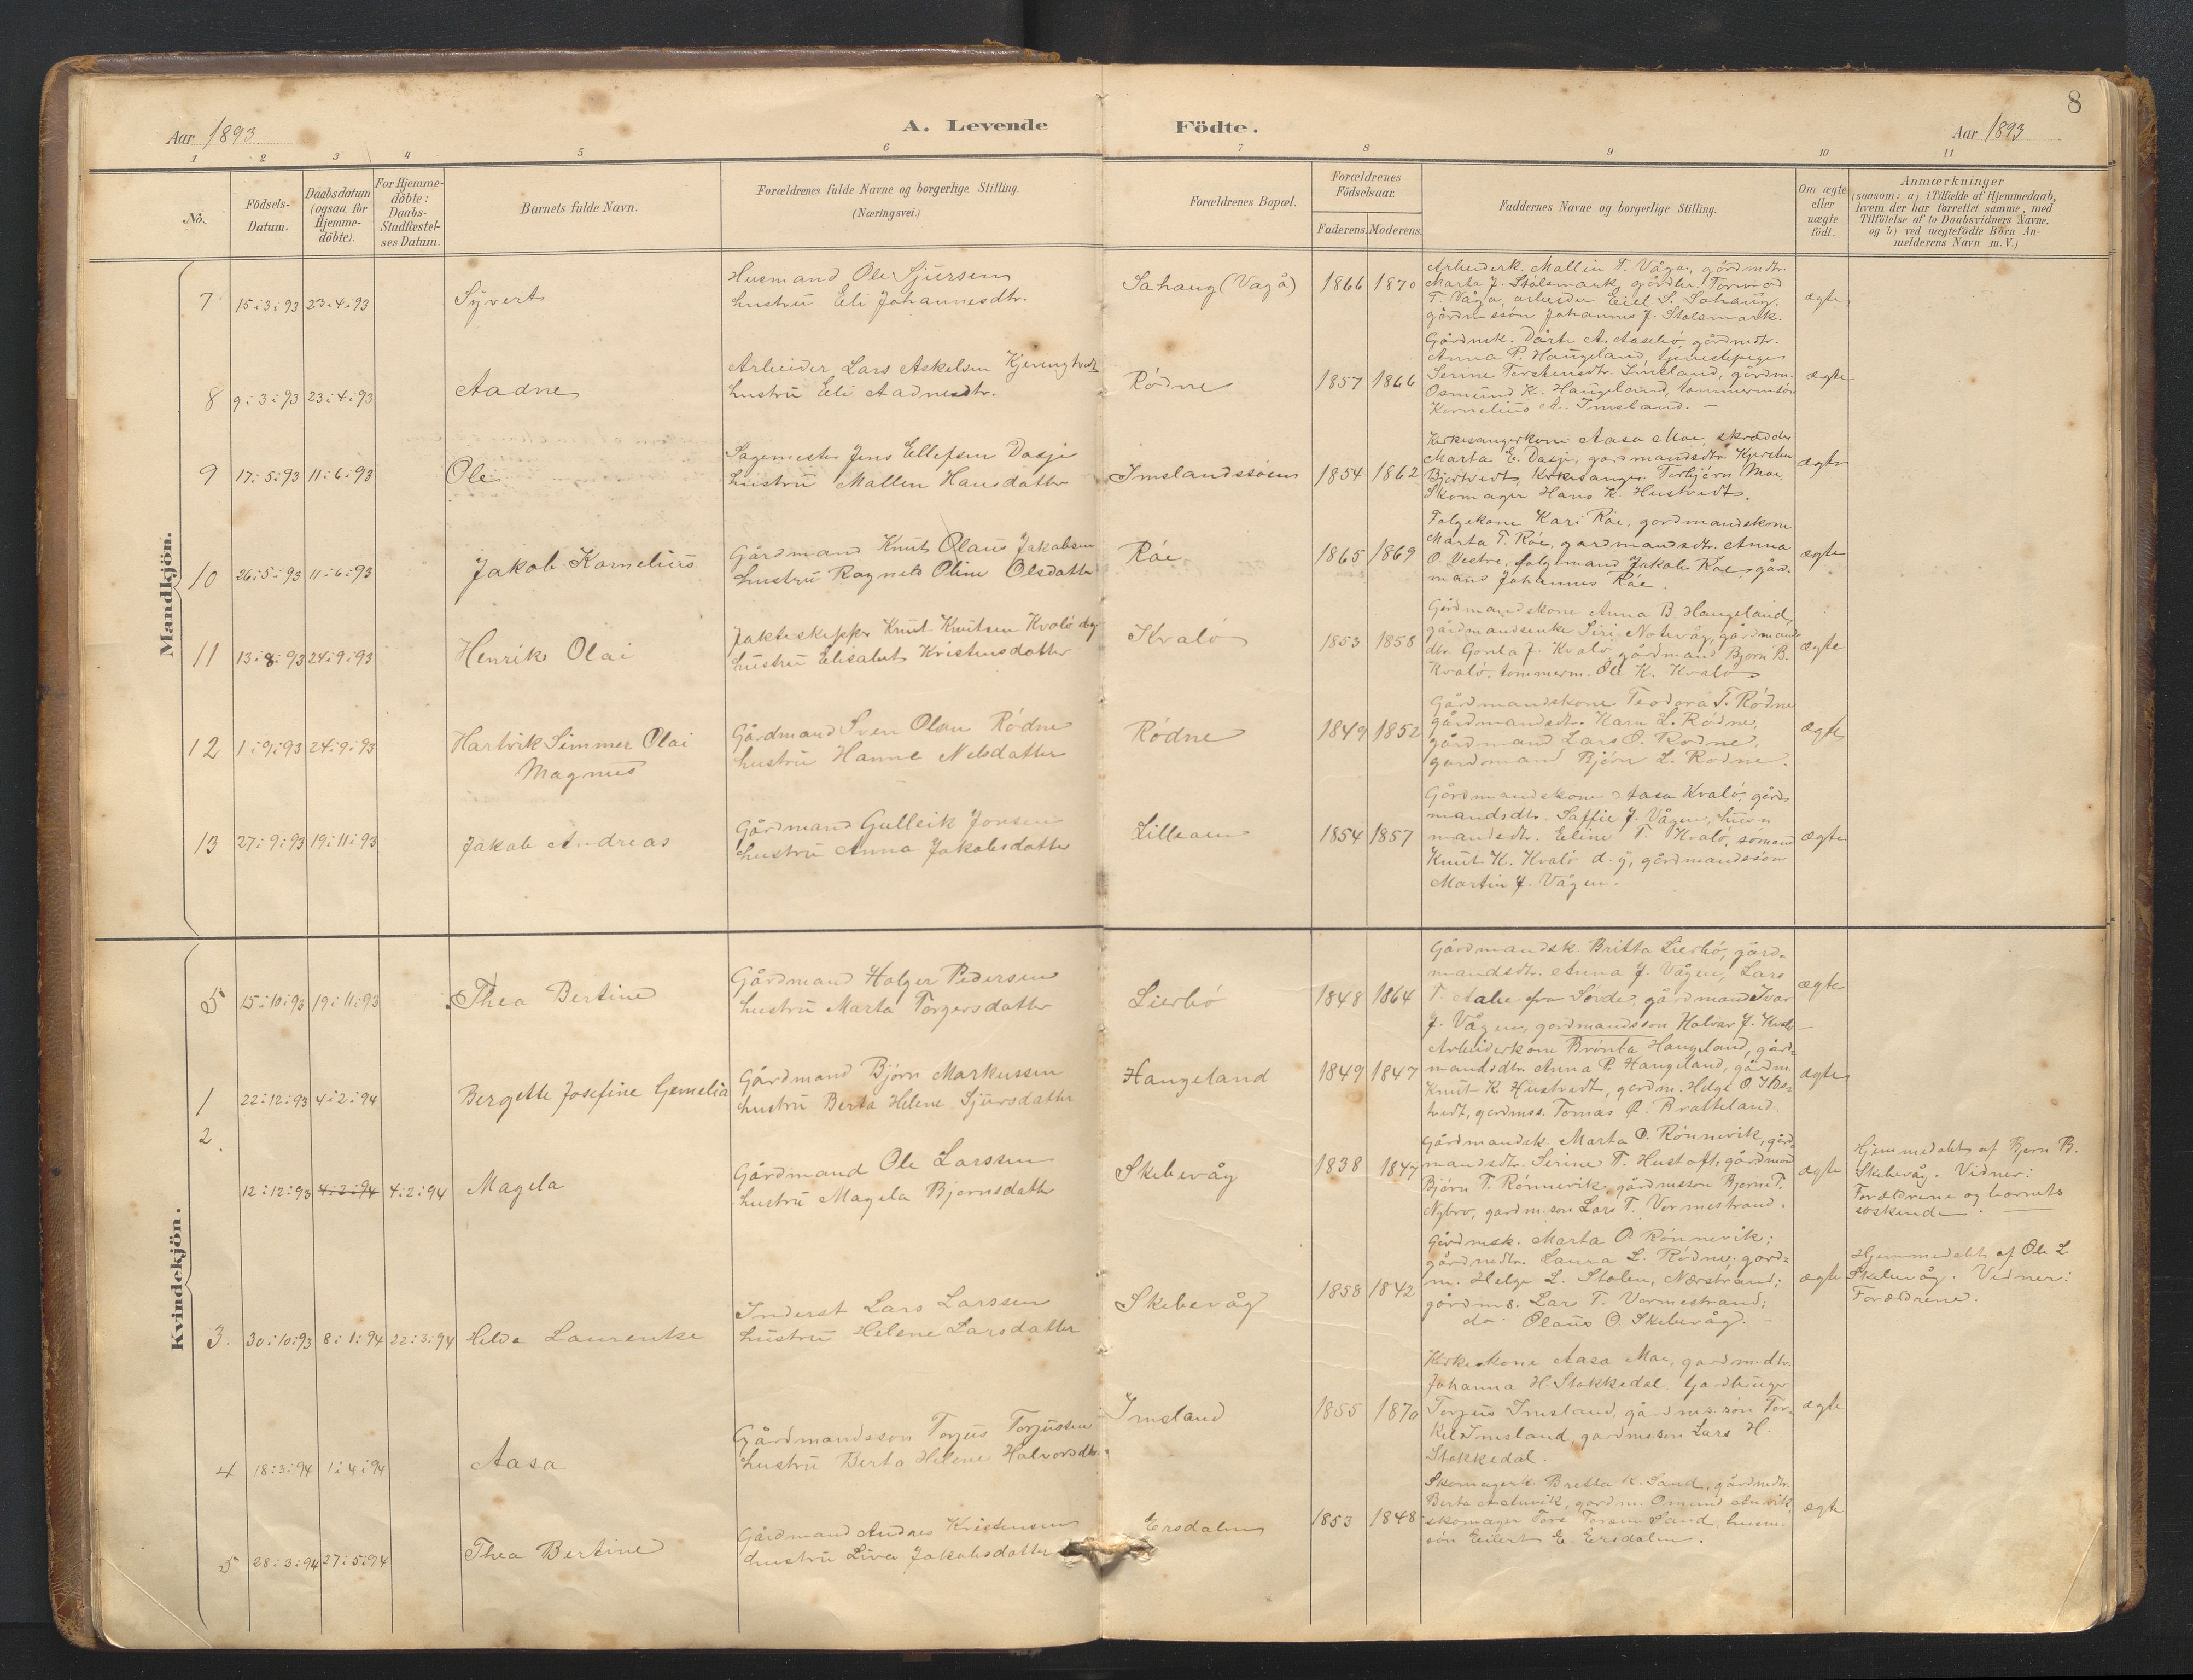 8
Aar 1893
A. Levende Födte.
Aar 1893
1 2 3 4 5 6 7 8 9 10 11
No.
Födsels-Datum.
Daabsdatum (ogsaa for Hjemme-döbte).
For Hjemme-döbte: Daabs-Stadfæstel-ses Datum.
Barnets fulde Navn.
Forældrenes fulde Navne og borgerlige Stilling.
(Næringsvei.)
Forældrenes Bopæl.
Forældrenes Födselsaar.
Faderens. Moderens.
Faddernes Navne og borgerlige Stilling.
Om ægte eller uægte födt.
Anmærkninger
(saasom: a) i Tilfælde af Hjemmedaab,
hvem der har forrettet samme, med
Tilföielse af to Daabsvidners Navne.
og b) ved uægtefödte Börn An-
melderens Navn m. V.)
Mandkjön.
7 15:3:93 23:4:93 Syvert
Husmand Ole Sjursen
hustru Eli Johannesdtr.
Sahaug (Vågå) 1866 1870
Arbeiderk. Mallin T. Våga, gårdmdtr.
Marta J. Stölsmark, gårdbr. Tormod
T. Våga, arbeider Eiel S. Sahaug,
gårdmssön Johannes J. Stølsmark.
ægte
8 9:3:93 23:4:93 Aadne
Arbeider Lars Askelsen Kjeringtvedt
hustru Eli Aadnesdtr.
Rødne 1857 1866
Gårdmk. Dårte A. Aasebö, gårdmdtr.
Anna P. Haugeland, tjenestepige
Serine Torstensdtr. Imsland, gårdm.
Osmund K. Haugeland, tømmermsön
Kornelius A. Imsland. –
ægte
9 17:5:93 11:6:93 Ole
Sagemester Jens Ellefsen Dasje
hustru Mallen Hansdatter
Imslandssøen 1854 1862
Kirkesangerkone Aasa Moe, skrædder
Marta E. Dasje, gårmandsdtr. Kjersten
Bjertvedt, Kirkesanger Torbjörn Moe,
Skomager Hans K. Hustvedt.
ægte
10 26:5:93 11:6:93 Jakob Kornelius
Gårdmand Knut Olaus Jakobsen
hustru Ragnild Oline Olsdatter
Råe 1865 1869
Folgekone Kari Råe, gordmandskone
Marta T. Råe, gardmandsdtr. Anna
O. Vestre, folgemand Jakob Råe, går-
mand Johannes Råe.
ægte
11 13:8:93 24:9:93 Henrik Olai
Jakteskipper Knut Knutsen Kvalö d.y.
hustru Elisabet Kristensdatter
Kvalö 1853 1858
Gårdmandskone Anna B. Haugeland,
gårdmandsenke Siri Notevåg, gårdmands
dtr. Gonla J. Kvalö, gårdmand Bjørn B.
Kvalö, tømmerm. Ole K. Kvalö
ægte
12 1:9:93 24:9:93 Hartvik Simmer Olai
Magnus
Gårdmand Sven Olan Rødne
hustru Hanne Nelsdatter
Rødne 1849 1852
Gårdmandskone Teodora T. Rødne
gårdmandsdtr. Karn L. Rødne,
gårdmand Lars O. Rødne,
gårdmand Bjørn L. Rødne.
ægte
13 27:9:93 19:11:93 Jakob Andreas
Gårdmand Gulleik Jonsen
hustru Anna Jakobsdatter
Lilleaen 1854 1857
Gårdmandskone Aasa Kvalö, gård-
mandsdtr. Saffie J. Vågen, hus-
mandsdtr. Eline T. Kvalö, sömand
Knut K. Kvalö d.y, gårdmandssön
Martin J. Vågen.
ægte
Kvindekjön.
5 15:10:93 19:11:93 Thea Bertine
Gårdmand Holger Pedersen
hustru Marta Torgersdatter
Lierbø 1848 1864
Gårdmandsk. Britta Lierbø, gård-
mandsdtr. Anna J. Vågen, Lars
T. Aabe fra Søvde, gårdmand Ivar
J. Vågen, gordmandssøn Halvar J. Kvalö
ægte
1 22:12:93 4:2:94 Bergette Josefine Gemelia
Gårdmand Bjørn Markussen
hustru Berta Helene Sjursdatter
Haugeland 1849 1847
Arbeiderkone Brønla Haugeland, gård-
mandsdtr. Anna P. Haugeland, gårdm.
Knut K. Hustvedt, gordm. Helge O.
tvedt, gordmss. Tomas Bratteland.
ægte
2. 12:12:93 4:2:94 4:2:94 Magela
Gårdmand Ole Larssen
hustru Magela Bjørnsdatter
Skebevåg 1838 1847
Gårdmandsk. Marta O. Rönnevik, gård-
mandsdtr. Serine T. Hustoft, gårdmand
Björn T. Rönnevik, gårdmssön Bjørne T.
Nybro, gardm.son Lars T. Vormestrand.
ægte
Hjemmedøbt af Bjørn B.
Skebevåg. Vidner:
Forældrene og barnets
søskende.
3. 30:10:93 8:1:94 22:3:94 Helda Laurentse
Inderst Lars Larssen
hustru Helene Larsdatter
Skebevåg 1858 1842
Gårdmsk. Marta O Rönnevik;
gårdmdtr. Laura L. Rödne; gord-
m. Helge L. Stølen, Nærstrand;
gårdms. Lars T. Vormestrand;
do. Olaus O. Skebevåg. –
ægte
Hjemmedøbt af Ole L.
Skebevåg. Vidner:
Forældrene.
4 18:3:94 1:4:94 Aasa
Gårdmandssøn Torjus Torjussen
hustru Berta Helene Halvorsdtr.
Imsland 1855 1870
Kirkeskone Aasa Moe, gardm.dtr.
Johanna H. Stokkedal. Gardbruger
Torjus Imsland, gårdms. søn Tor-
kel Imsland, gardmssøn Lars H.
Stokkedal.
ægte
5 28:3:94 27:5:94 Thea Bertine
Gårdmand Andres Kristensen
hustru Liva Jakobsdatter
Ersdalen 1853 1848
Skomagerk. Bretta K. Sand, gårdmdtr.
Berta A. Anvik, gordm. Omund Anvik
skomager Tore Torsen Sand, husm-
søn Eilert E. Ersdalen.
ægte